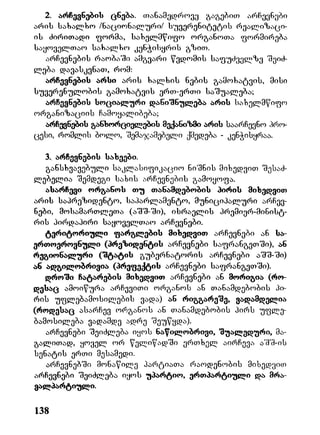 2. არჩევნების ცნება. თანამედროვე გაგებით არჩევნები
არის სახალხო /ნაციონალური/ სუვერენიტეტის რეალიზაცი-
ის ძირითადი ფორმა, სახელმწიფო ორგანოთა ფორმირება
საყოველთაო სახალხო კენჭისყრის გზით.
არჩევნების რაობაში ამგვარი წვდომის საფუძველზე შეიძ-
ლება დავასკვნათ, რომ:
არჩევნების არსი არის ხალხის ნების გამოხატვის, მისი
სუვერენულობის გამოხატვის ერთ-ერთი საშუალება;
არჩევნების სოციალური დანიშნულება არის სახელმწიფო
ორგანიზაციის ჩამოყალიბება;
არჩევნების განხორციელების მექანიზმი არის საარჩევნო პრო-
ცესი, რომლის ბოლო, შემაჯამებელი ქმედება - კენჭისყრაა.
3. არჩევნების სახეები.
განსხვავებული საკლასიფიკაციო ნიშნის მიხედვით შესაძ-
ლებელია შემდეგი სახის არჩევნების გამოყოფა.
ასარჩევი ორგანოს თუ თანამდებობის პირის მიხედვით
არის საპრეზიდენტო, საპარლამენტო, მუნიციპალური არჩევ-
ნები, მოსამართლეთა (აშშ-ში), ისრაელის პრემიერ-მინისტ-
რის პირდაპირი საყოველთაო არჩევნები.
ტერიტორიული ფარგლების მიხედვით არჩევნები ან სა-
ერთოეროვნული (პრეზიდენტის არჩევნები საფრანგეთში), ან
რეგიონალური (შტატის გუბერნატორის არჩევნები აშშ-ში)
ან ადგილობრივია (პრეფექტის არჩევნები საფრანგეთში).
დროში ჩატარების მიხედვით არჩევნები ან მორიგია (რო-
დესაც ამოიწურა არჩევითი ორგანოს ან თანამდებობის პი-
რის უფლებამოსილების ვადა) ან რიგგარეშე, ვადამდელია
(როდესაც ასარჩევ ორგანოს ან თანამდებობის პირს უფლე-
ბამოსილება ვადამდე ადრე შეუწყდა).
არჩევნები შეიძლება იყოს ნაწილობრივი, შუალედური, მა-
გალითად, ყოველ ორ წელიწადში ერთხელ აირჩევა აშშ-ის
სენატის ერთი მესამედი.
არჩევნებში მონაწილე პარტიათა რაოდენობის მიხედვით
არჩევნები შეიძლება იყოს უპარტიო, ერთპარტიული და მრა-
ვალპარტიული.
138